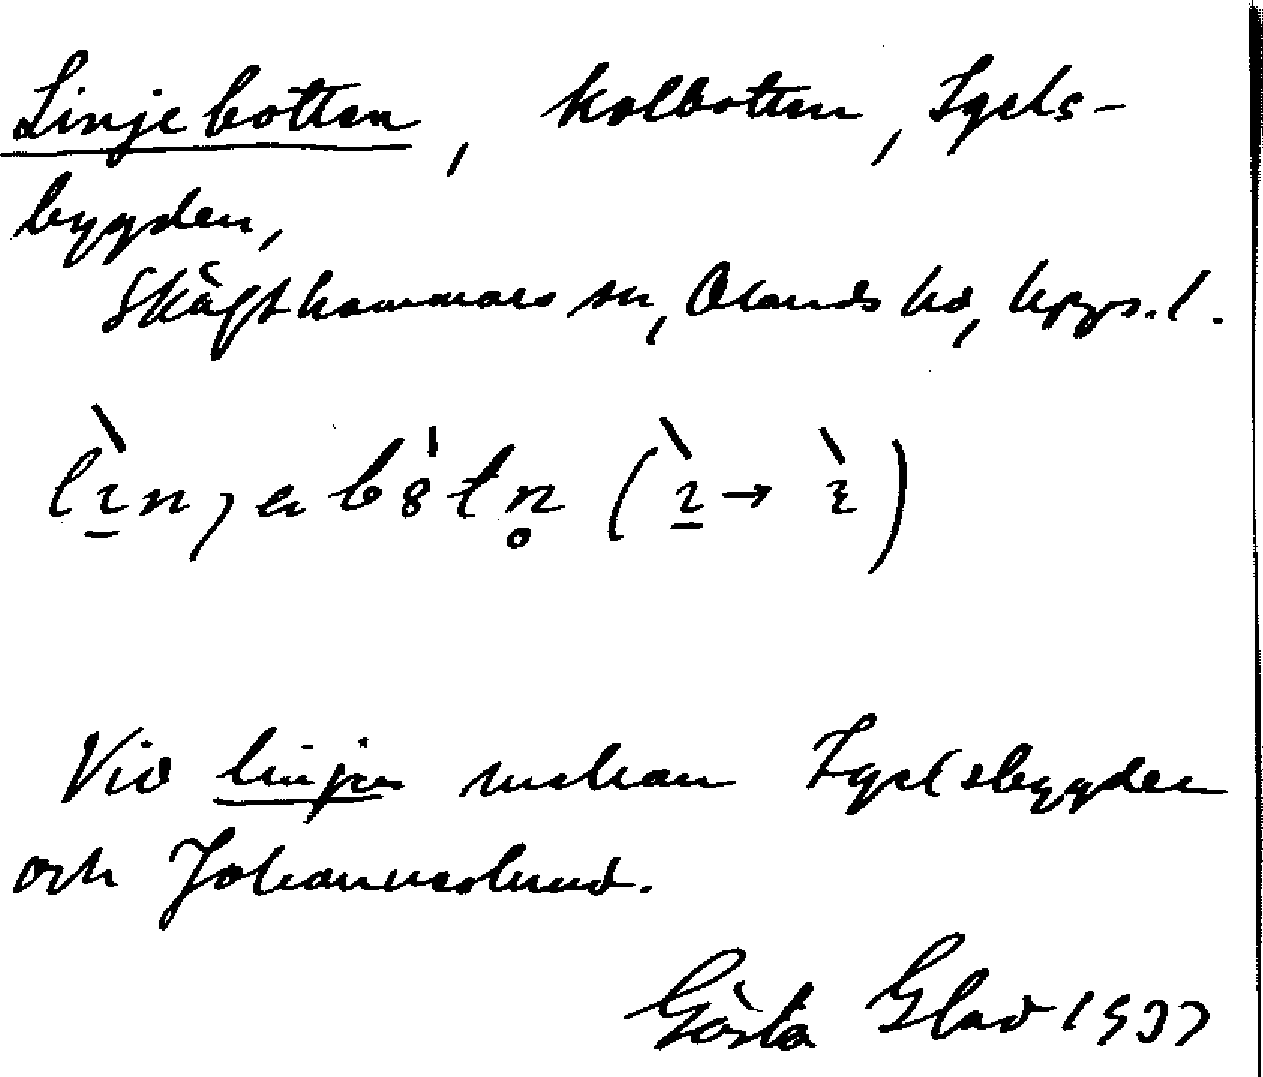 Linjebotten, kolbotten, Igels-
bygden,
Skäfthammars sn, Olands hd, Upps. l.
Vid linjen mellan Igelsbygden
och Johanneslund.
Gösta Glad 1937